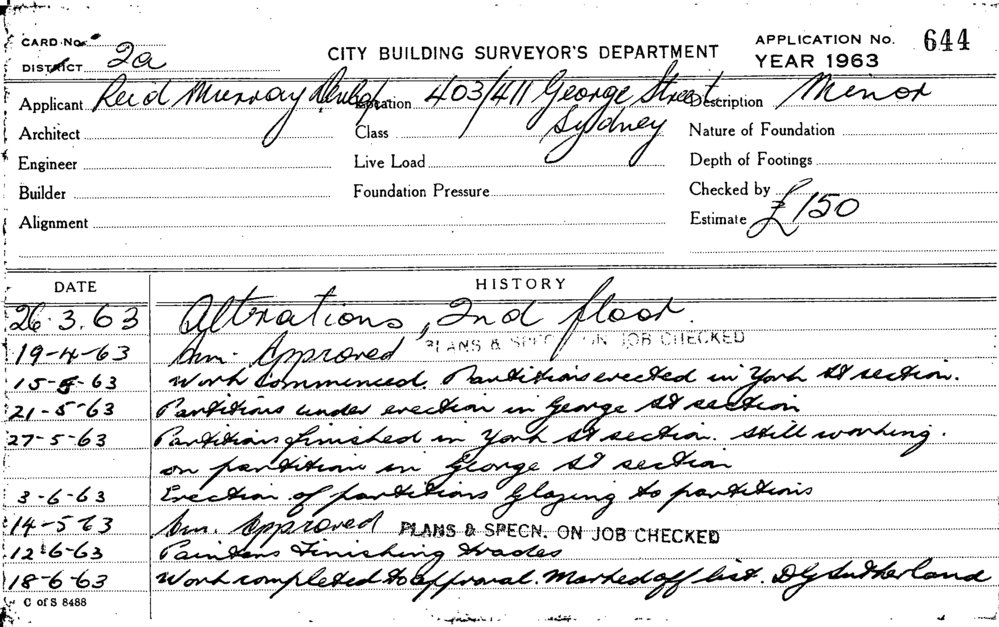 CARD No.
DISTRICT 2a
CITY BUILDING SURVEYOR'S DEPARTMENT
APPLICATION No. 644
YEAR 1963
Applicant Reid Murray Location 403/411 George Street Description Minor
Sydney
Architect Class Nature of Foundation
Engineer Live Load Depth of Footings
Builder Foundation Pressure Checked by
Alignment Estimate £150
DATE HISTORY
26.3.63 Altrations, 2nd floor.
19-4-63 Approved PLANS & SPECN. ON JOB CHECKED
15-5-63 Work commenced. Partitions erected in York St section.
21-5-63 Partitions under erection in George St section
27-5-63 Partitions finished in York St section. Still working.
on partition in George St section
3-6-63 Erection of partitions Glazing to partitions
14-5 63 Approved PLANS & SPECN. ON JOB CHECKED
12-6-63 Painters Finishing trades
18-6-63 Work completed to approval. Marked off list. DG Sutherland
C of S 8488